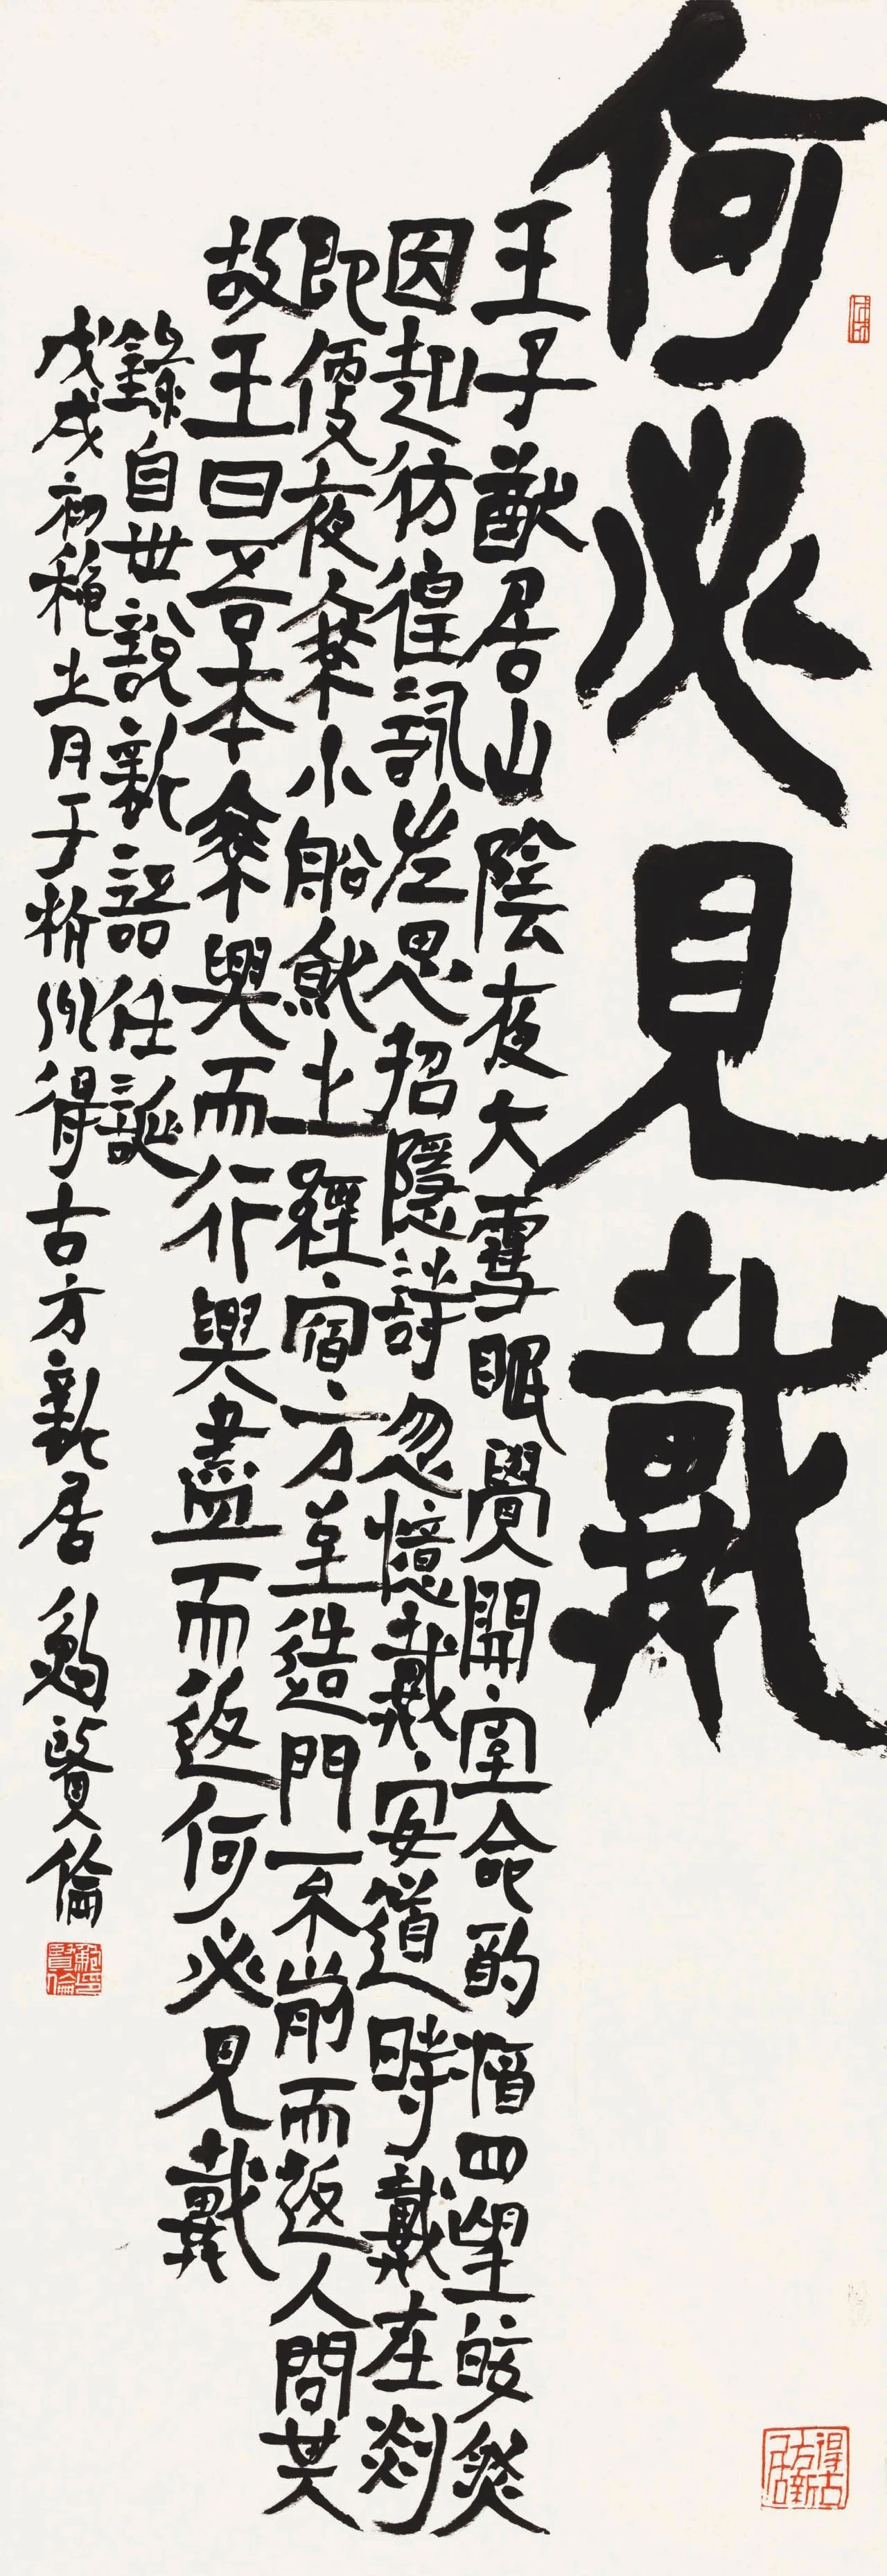 何必見戴
王子猷居山陰夜大雪眠覺開室命酌酒四望皎然
因起彷徨詠左思招隱詩忽憶戴安道時戴在剡
即便夜乘小船就之經宿方至造門不前而返人問其
故王曰吾本乘興而行興盡而返何必見戴
錄自世說新語任誕
戊戌初穐之月于州得古方新居賢倫
得古方新居